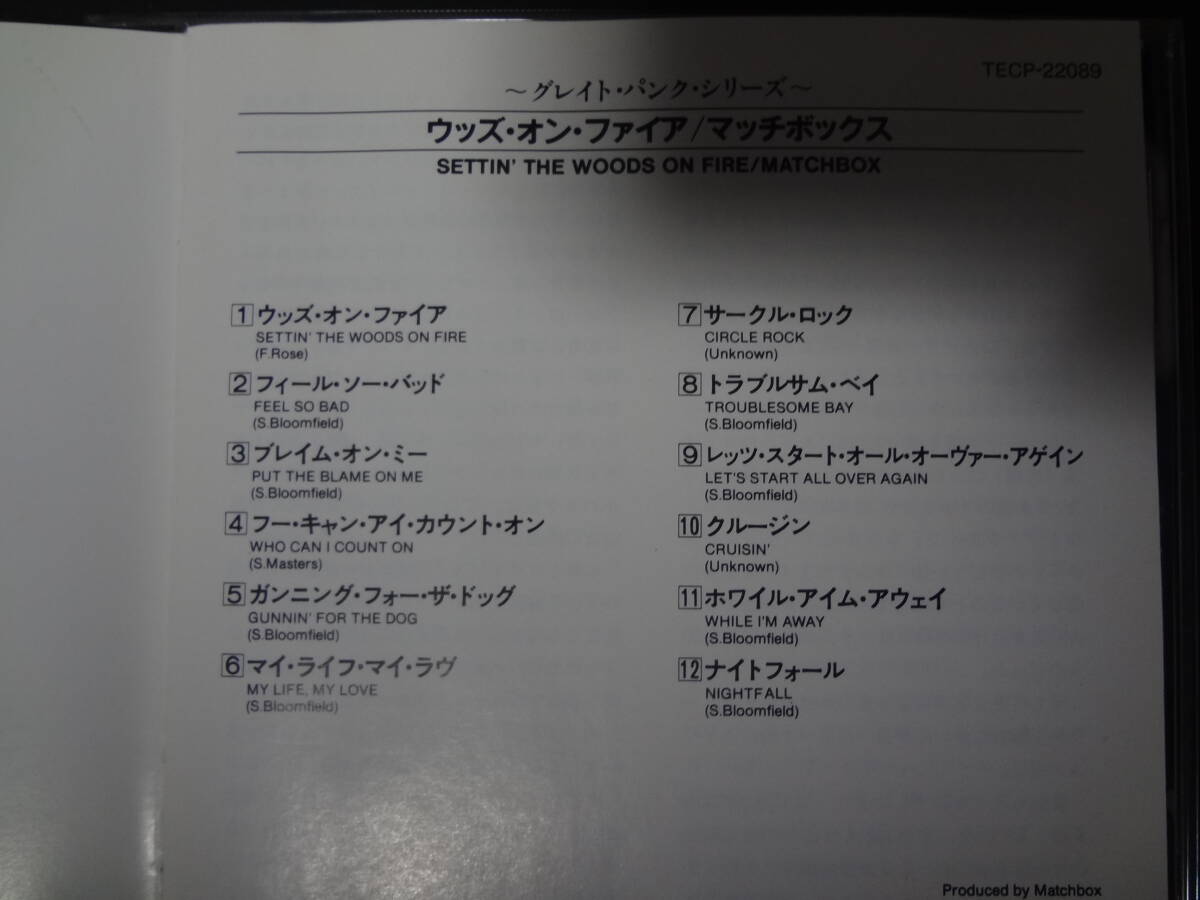 TECP-22089
～グレイト・パンク・シリーズ～
ウッズ・オン・ファイア/マッチボックス
SETTIN' THE WOODS ON FIRE/MATCHBOX
1 ウッズ・オン・ファイア
SETTIN' THE WOODS ON FIRE
(F.Rose)
2 フィール・ソー・バッド
FEEL SO BAD
(S.Bloomfield)
3 ブレイム・オン・ミー
PUT THE BLAME ON ME
(S.Bloomfield)
4 フー・キャン・アイ・カウント・オン
WHO CAN I COUNT ON
(S.Masters)
5 ガンニング・フォー・ザ・ドッグ
GUNNIN' FOR THE DOG
(S.Bloomfield)
6 マイ・ライフ・マイ・ラヴ
MY LIFE, MY LOVE
(S.Bloomfield)
7 サークル・ロック
CIRCLE ROCK
(Unknown)
8 トラブルサム・ベイ
TROUBLESOME BAY
(S.Bloomfield)
9 レッツ・スタート・オール・オーヴァー・アゲイン
LET'S START ALL OVER AGAIN
(S.Bloomfield)
10 クルージン
CRUISIN'
(Unknown)
11 ホワイル・アイム・アウェイ
WHILE I'M AWAY
(S.Bloomfield)
12 ナイトフォール
NIGHTFALL
(S.Bloomfield)
Produced by Matchbox